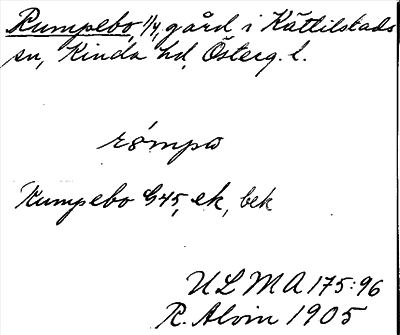 Rumpebo, 1/4, gård i Kättilstads
sn, Kinda hd, Österg. l.
rómpo
Rumpebo G45, ek, bek
ULMA 175:96
R. Alvin 1905